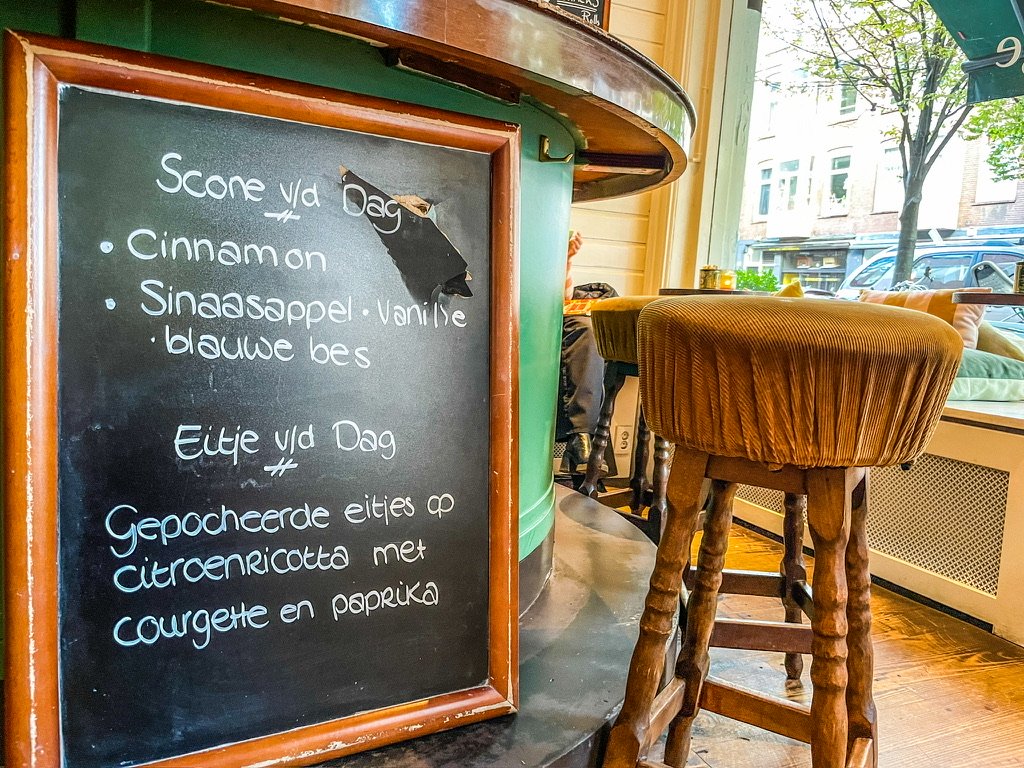 Scone v/d Dag
• Cinnamon
• Sinaasappel · Vanille
· blauwe bes
Eitje v/d Dag
Gepocheerde eitjes op
citroenricotta met
courgette en paprika
Rolls